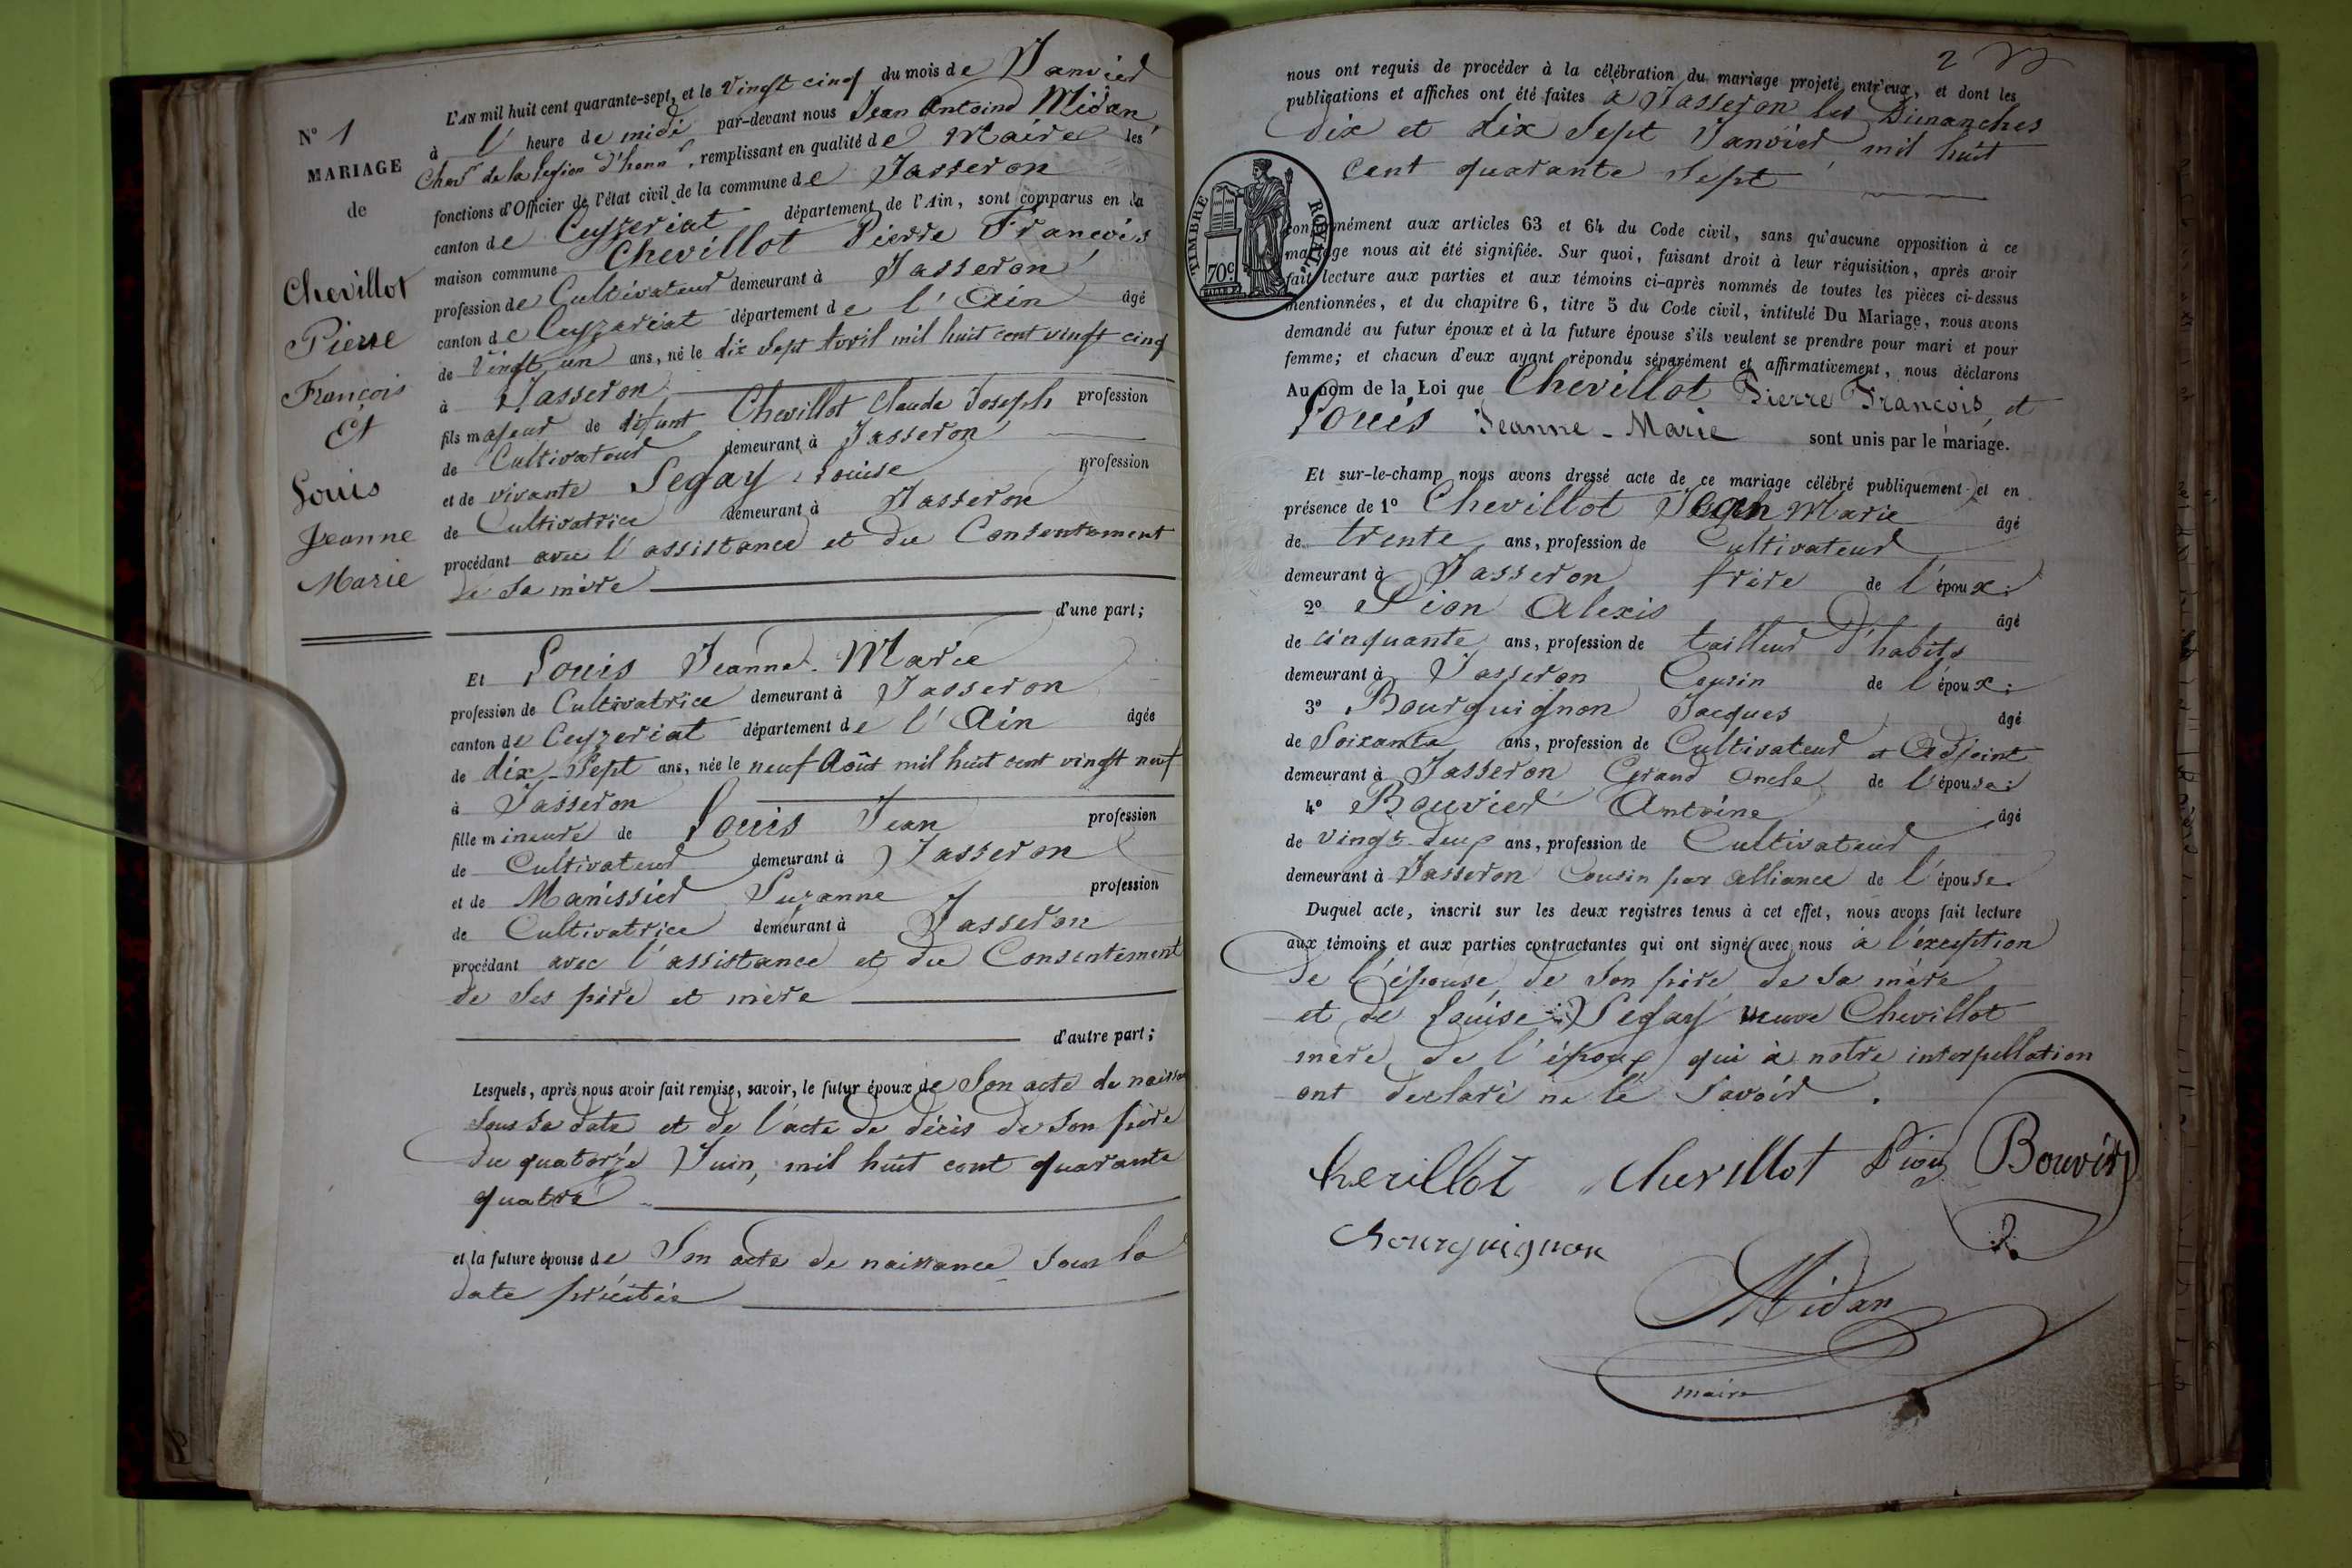 N° 1
MARIAGE
de
Chevillot
Pierre
François
Et
Louis
Jeanne
Marie
L'AN mil huit cent quarante-sept, et le Vingt cinq du mois de Janvier
à l' heure de midi par-devant nous Jean Antoine Midan,
Chevr de la Légion d'honnr, remplissant en qualité de Maire les
fonctions d'Officier de l'état civil de la commune de Jasseron
canton de Ceyzeriat département de l'Ain, sont comparus en la
maison commune Chevillot Pierre François
profession de Cultivateur demeurant à Jasseron
canton de Ceyzeriat département de l'Ain âgé
de Vingt un ans, né le dix sept Avril mil huit cent vingt cinq
à Jasseron
fils majeur de défunt Chevillot Claude Joseph profession
de Cultivateur demeurant à Jasseron
et de vivante Segay Louise profession
de Cultivatrice demeurant à Jasseron
procédant avec l'assistance et du Consentement
de sa mère
d'une part;
Et Louis Jeanne-Marie
profession de Cultivatrice demeurant à Jasseron
canton de Ceyzeriat département de l'Ain âgée
de dix-sept ans, née le neuf Août mil huit cent vingt neuf
à Jasseron
fille mineure de Louis Jean profession
de Cultivateur demeurant à Jasseron
et de Manissier Suzanne profession
de Cultivatrice demeurant à Jasseron
procédant avec l'assistance et du Consentement
de ses père et mère
d'autre part;
Lesquels, après nous avoir fait remise, savoir, le futur époux de Son acte de
sous sa date et de l'acte de décès de son père
du quatorze Juin, mil huit cent quarante
quatre
et la future épouse de Son acte de naissance sous la
date précitée
2
nous ont requis de procéder à la célébration du mariage projeté entr'eux, et dont les
publications et affiches ont été faites à Jasseron les Dimanches
dix et dix Sept Janvier mil huit
cent quarante Sept
TIMBRE ROYAL
70c
conformément aux articles 63 et 64 du Code civil, sans qu'aucune opposition à ce
mariage nous ait été signifiée. Sur quoi, faisant droit à leur réquisition, après avoir
fait lecture aux parties et aux témoins ci-après nommés de toutes les pièces ci-dessus
mentionnées, et du chapitre 6, titre 5 du Code civil, intitulé Du Mariage, nous avons
demandé au futur époux et à la future épouse s'ils veulent se prendre pour mari et pour
femme; et chacun d'eux ayant répondu séparément et affirmativement, nous déclarons
Au nom de la Loi que Chevillot Pierre François et
Louis Jeanne-Marie sont unis par le mariage.
Et sur-le-champ nous avons dressé acte de ce mariage célébré publiquement et en
présence de 1° Chevillot Jean Marie âgé
de trente ans, profession de Cultivateur
demeurant à Jasseron frère de l'époux;
2° Pion Alexis âgé
de cinquante ans, profession de tailleur d'habits
demeurant à Jasseron Cousin de l'époux;
3° Bourguignon Jacques âgé
de Soixante ans, profession de Cultivateur et Adjoint
demeurant à Jasseron Grand Oncle de l'épouse;
4° Bouvier Antoine âgé
de vingt-deux ans, profession de Cultivateur
demeurant à Jasseron Cousin par alliance de l'épouse.
Duquel acte, inscrit sur les deux registres tenus à cet effet, nous avons fait lecture
aux témoins et aux parties contractantes qui ont signé avec nous à l'exception
de l'épouse, de son père de sa mère
et de Louise Segay veuve Chevillot
mère de l'époux qui à notre interpellation
ont déclaré ne le Savoir.
Chevillot Chevillot Pion Bouvier
Bourguignon
Midan
maire